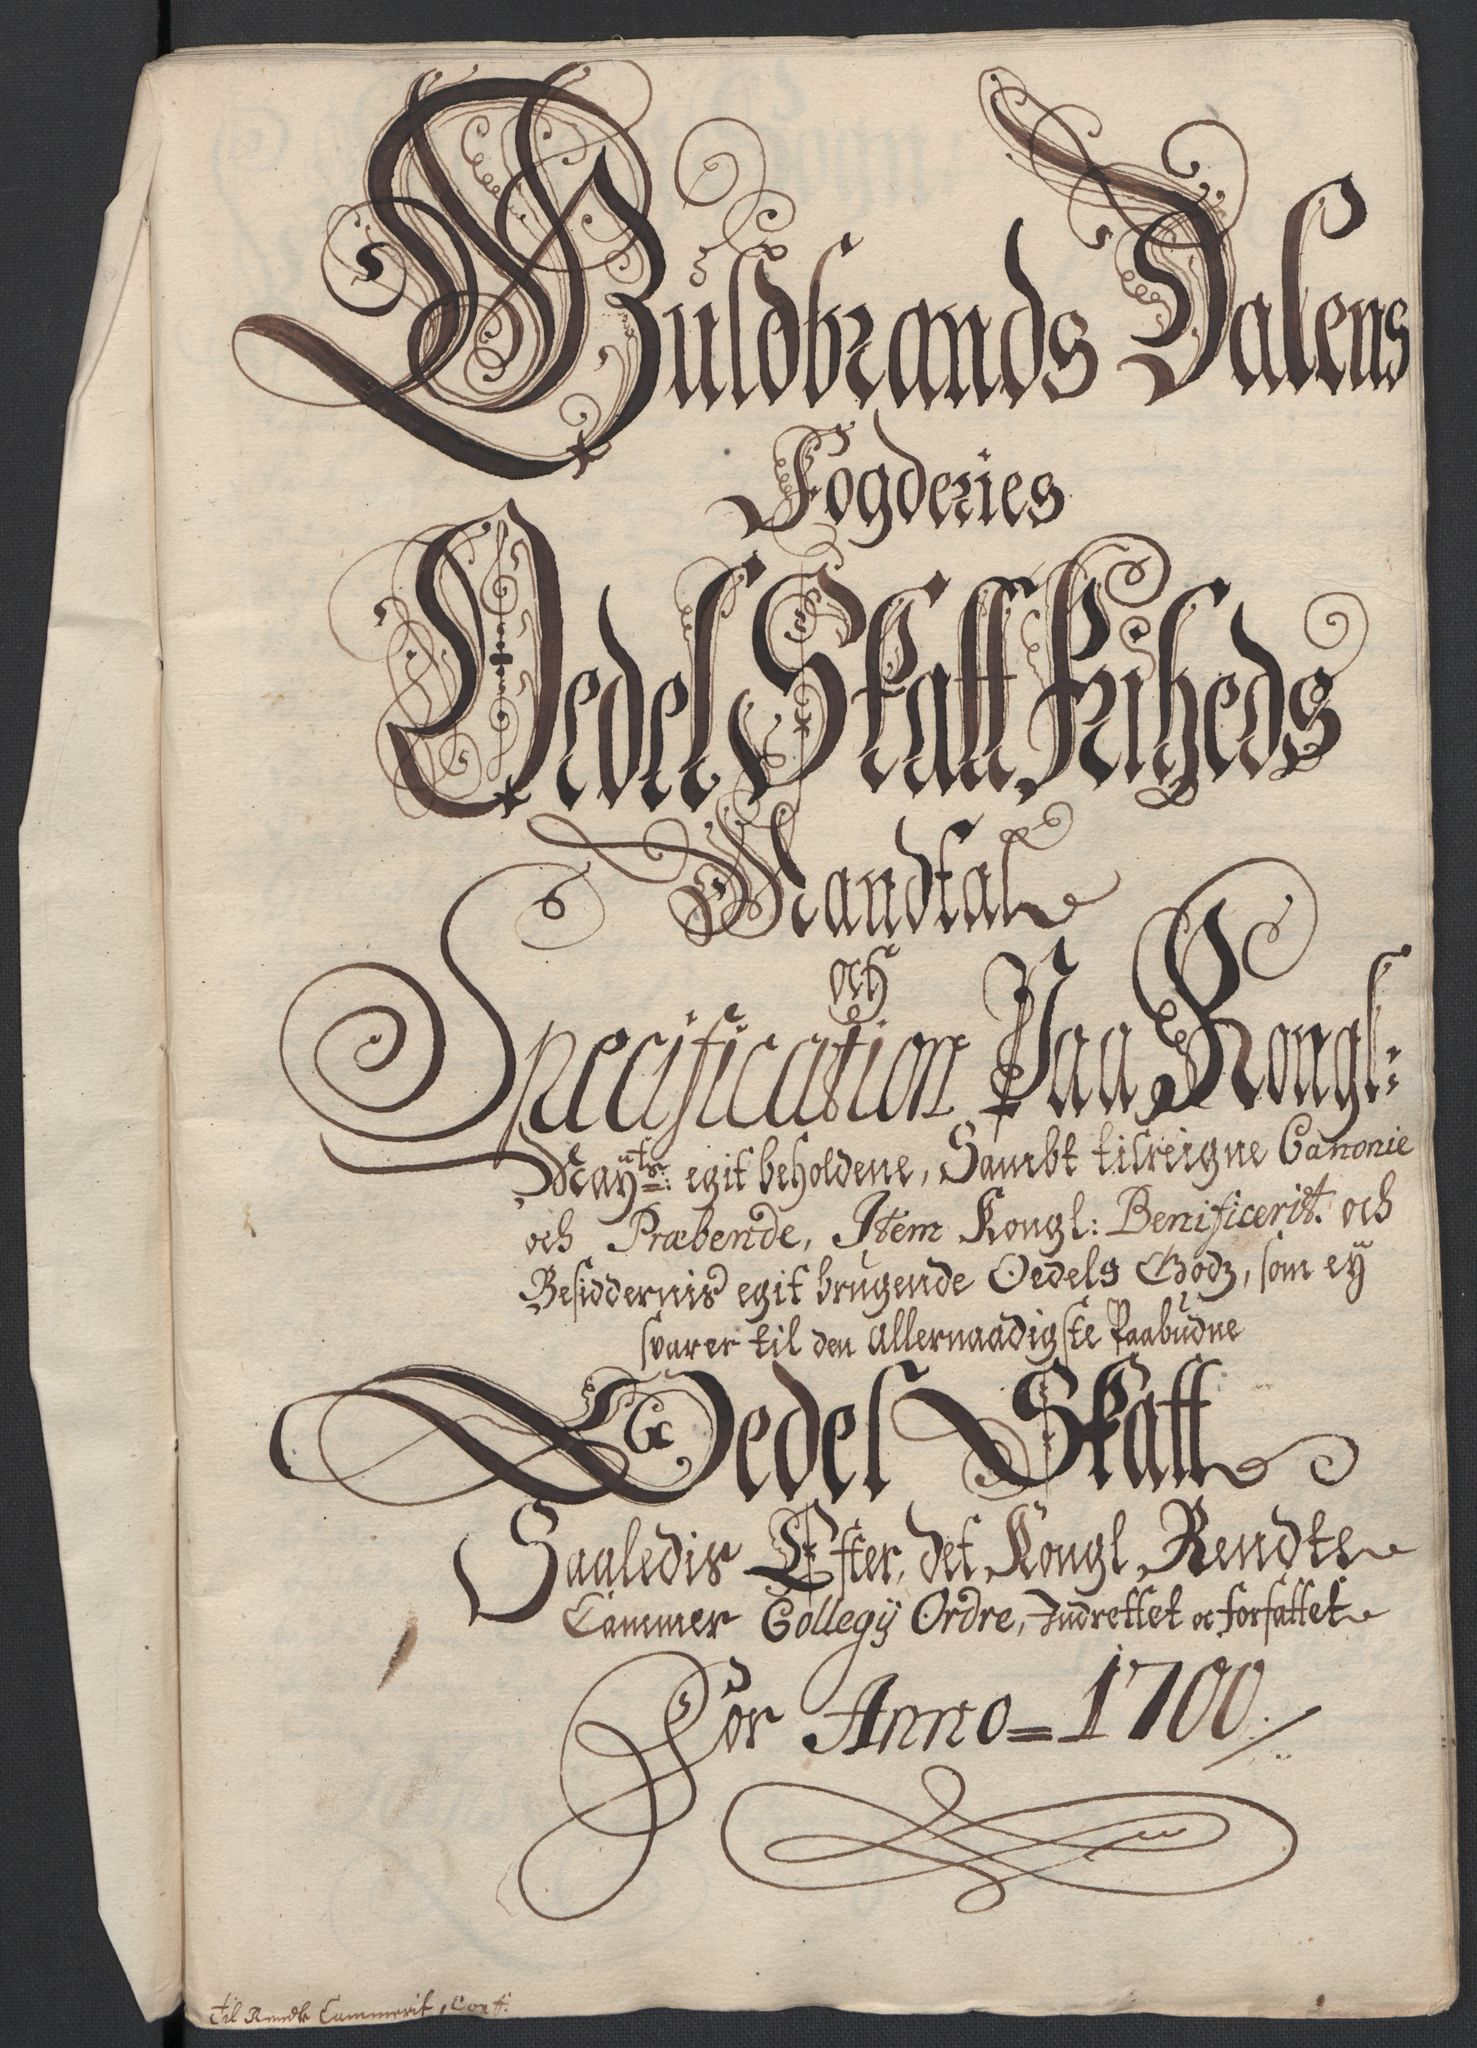 Guldbrands Dalens
Fogderies
Oedel Skatt Friheds
Mandtal
och
Specification Paa Kongl:
Mayts: egit beholdene, Sambt tilreigne Canonie
och Præbende, Item Kongl: Benificerit. och
Besiddernis egit brugende Oedels Godz, som ey
svarer til den Allernaadigste Paabudne
Oedel Skatt
Saaledis Efter, det Kongl Rendte
Cammer Collegij Ordre, Indrettet oc forfattet
For Anno = 1700
Til Rendte Cammerit, Cont: